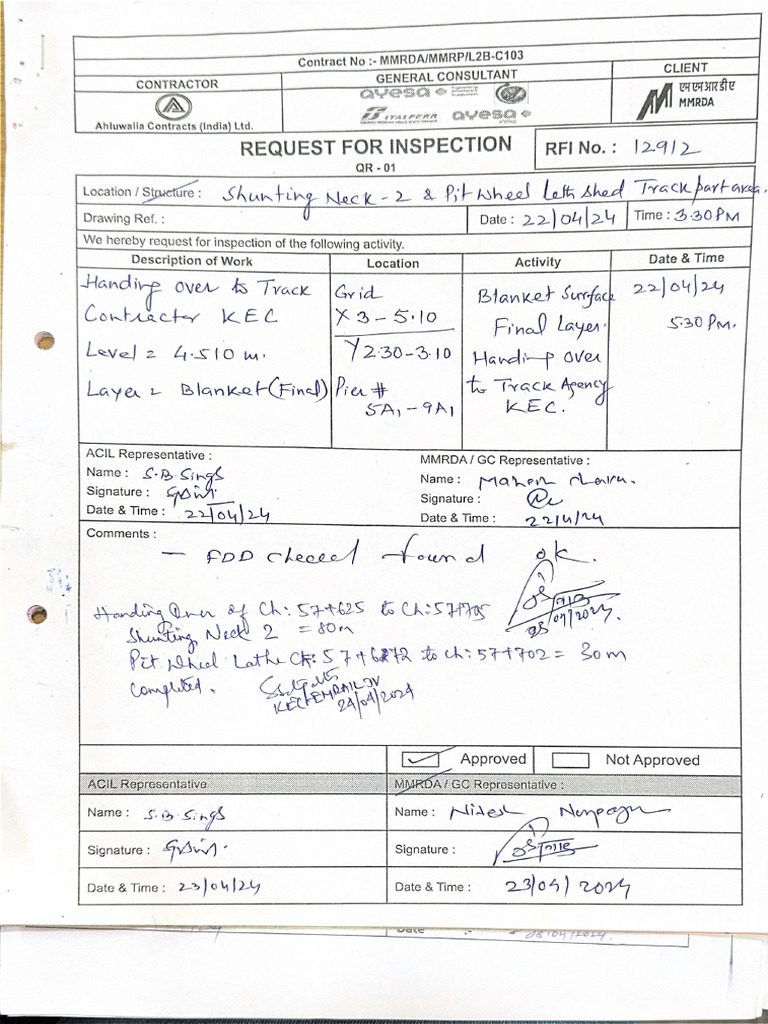 Contract No :- MMRDA/MMRP/L2B-C103
CONTRACTOR
GENERAL CONSULTANT
CLIENT
Ahluwalia Contracts (India) Ltd.
ayesa
ITALFERR
ayesa
एमएमआरडीए
MMRDA
REQUEST FOR INSPECTION
QR - 01
RFI No. : 12912
Location / Structure : Shunting Neck - 2 & Pit Wheel Leth Shed Track part area.
Drawing Ref. :
Date : 22/04/24
Time : 3.30PM
We hereby request for inspection of the following activity.
Description of Work
Location
Activity
Date & Time
Handing over to Track
Contractor KEC
Level = 4.510 m.
Layer = Blanket (Final)
Grid
X 3 - 5.10
Y 2.30 - 3.10
Pier #
5A1 - 9A1
Blanket Surface
Final Layer.
Handing over
to Track Agency
KEC.
22/04/24
5.30 Pm.
ACIL Representative :
Name : S.B. Singh
Signature :
Date & Time : 22/04/24
MMRDA / GC Representative :
Name :
Signature :
Date & Time : 22/4/24
Comments :
- FDD checked found ok.
Handing Over of Ch: 57+625 to Ch: 57+705
Shunting Neck 2 = 80m
Pit Wheel Lathe Ch: 57+672 to Ch: 57+702 = 30m
Completed.
24/04/2024
Approved
Not Approved
ACIL Representative
MMRDA / GC Representative :
Name : S.B. Singh
Name : Nitesh
Signature :
Signature :
Date & Time : 23/04/24
Date & Time : 23/04/2024
Date :- 23/04/2024.